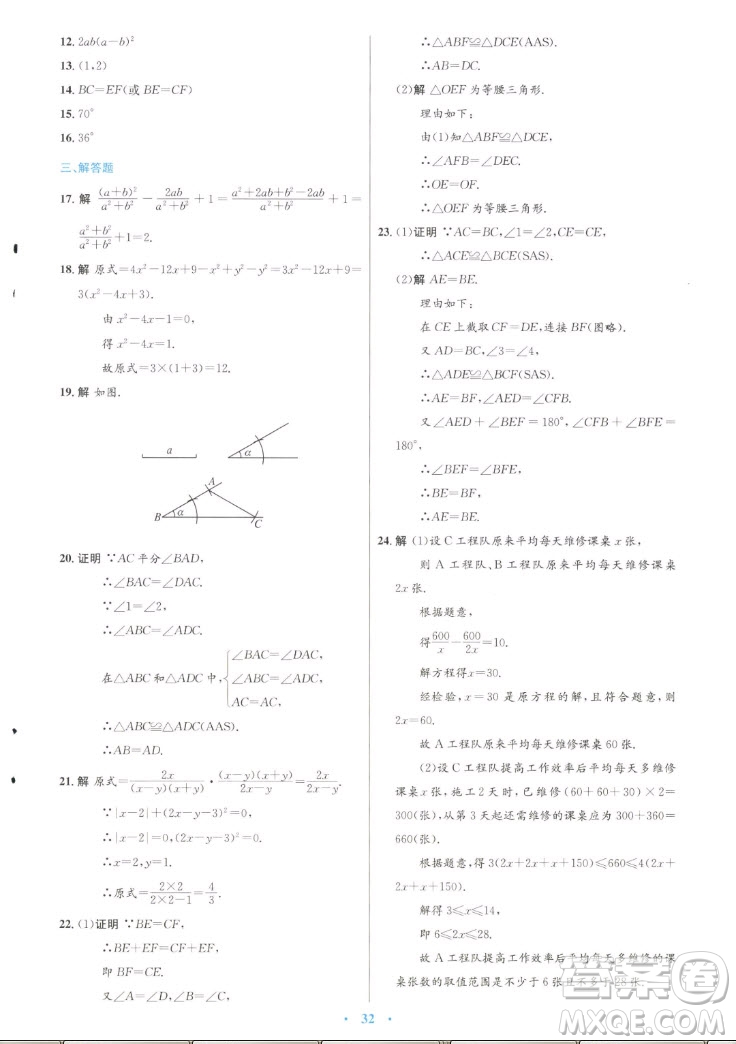 12. 2ab(a-b)²
13. (1,2)
14. BC=EF(或 BE=CF)
15. 70°
16. 36°
三、解答题
17. 解 (a+b)²/(a²+b²) - 2ab/(a²+b²) +1= (a²+2ab+b²-2ab)/(a²+b²) +1=
(a²+b²)/(a²+b²) +1=2.
18. 解 原式=4x²-12x+9-x²+y²-y²=3x²-12x+9=
3(x²-4x+3).
由 x²-4x-1=0,
得 x²-4x=1.
故原式=3×(1+3)=12.
19. 解 如图.
a
α
A
B
α
C
20. 证明 ∵AC 平分∠BAD,
∴∠BAC=∠DAC.
∵∠1=∠2,
∴∠ABC=∠ADC.
在△ABC 和△ADC 中, { ∠BAC=∠DAC,
∠ABC=∠ADC,
AC=AC.
∴△ABC≌△ADC(AAS).
∴AB=AD.
21. 解 原式= 2x/((x-y)(x+y)) · (x-y)(x+y)/(2x-y) = 2x/(2x-y).
∵|x-2|+(2x-y-3)²=0,
∴|x-2|=0,(2x-y-3)²=0,
∴x=2,y=1.
∴原式= (2×2)/(2×2-1) = 4/3.
22. (1)证明 ∵BE=CF,
∴BE+EF=CF+EF,
即 BF=CE.
又∠A=∠D,∠B=∠C,
∴△ABF≌△DCE(AAS).
∴AB=DC.
(2)解 △OEF 为等腰三角形.
理由如下:
由(1)知△ABF≌△DCE,
∴∠AFB=∠DEC.
∴OE=OF.
∴△OEF 为等腰三角形.
23. (1)证明 ∵AC=BC,∠1=∠2,CE=CE,
∴△ACE≌△BCE(SAS).
(2)解 AE=BE.
理由如下:
在 CE 上截取 CF=DE,连接 BF(图略).
又 AD=BC,∠3=∠4,
∴△ADE≌△BCF(SAS).
∴AE=BF,∠AED=∠CFB.
又∠AED+∠BEF=180°,∠CFB+∠BFE=
180°,
∴∠BEF=∠BFE.
∴BE=BF.
∴AE=BE.
24. 解 (1)设 C 工程队原来平均每天维修课桌 x 张,
则 A 工程队、B 工程队原来平均每天维修课桌
2x 张.
根据题意,
得 600/x - 600/2x =10.
解方程得 x=30.
经检验,x=30 是原方程的解,且符合题意,
2x=60.
故 A 工程队原来平均每天维修课桌 60 张.
(2)设 C 工程队提高工作效率后平均每天多维修
课桌 x 张,施工 2 天时,已维修(60+60+30)×2=
300(张),从第 3 天起还需维修的课桌应为 300+360=
660(张).
根据题意,得 3(2x+2x+x+150)≤660≤4(2x+
2x+x+150).
解得 3≤x≤14,
即 6≤2x≤28.
故 A 工程队提高工作效率后平均每天多维修的课
桌张数的取值范围是不少于 6 张且不多于 28 张.
32
答案卷
MXQE.COM